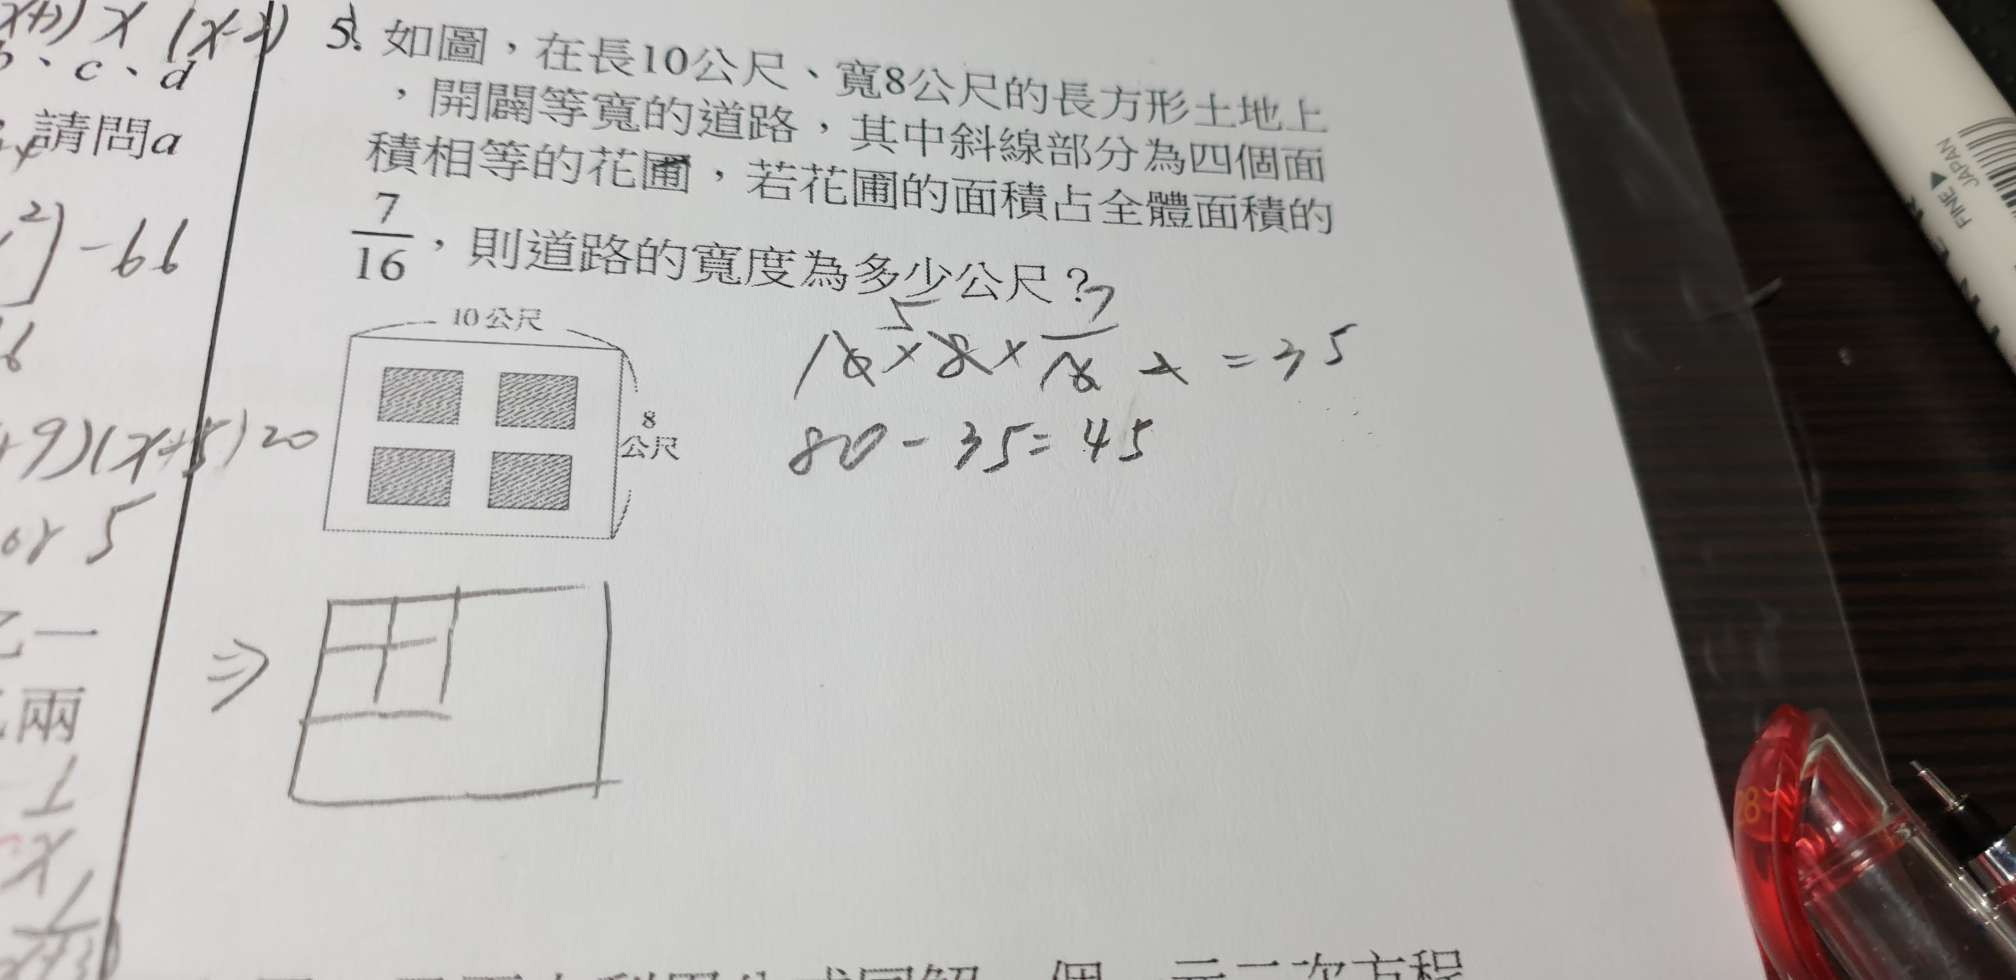 x+2) x (x-2)
、c、d
請問a
2) -66
+9)(x+5)20
or 5
一
兩
5. 如圖，在長10公尺、寬8公尺的長方形土地上
，開闢等寬的道路，其中斜線部分為四個面
積相等的花圃，若花圃的面積占全體面積的
7/16，則道路的寬度為多少公尺？
10公尺
8
公尺
5 7
10×8×16 = 35
80-35=45
⇒
FINE
JAPAN